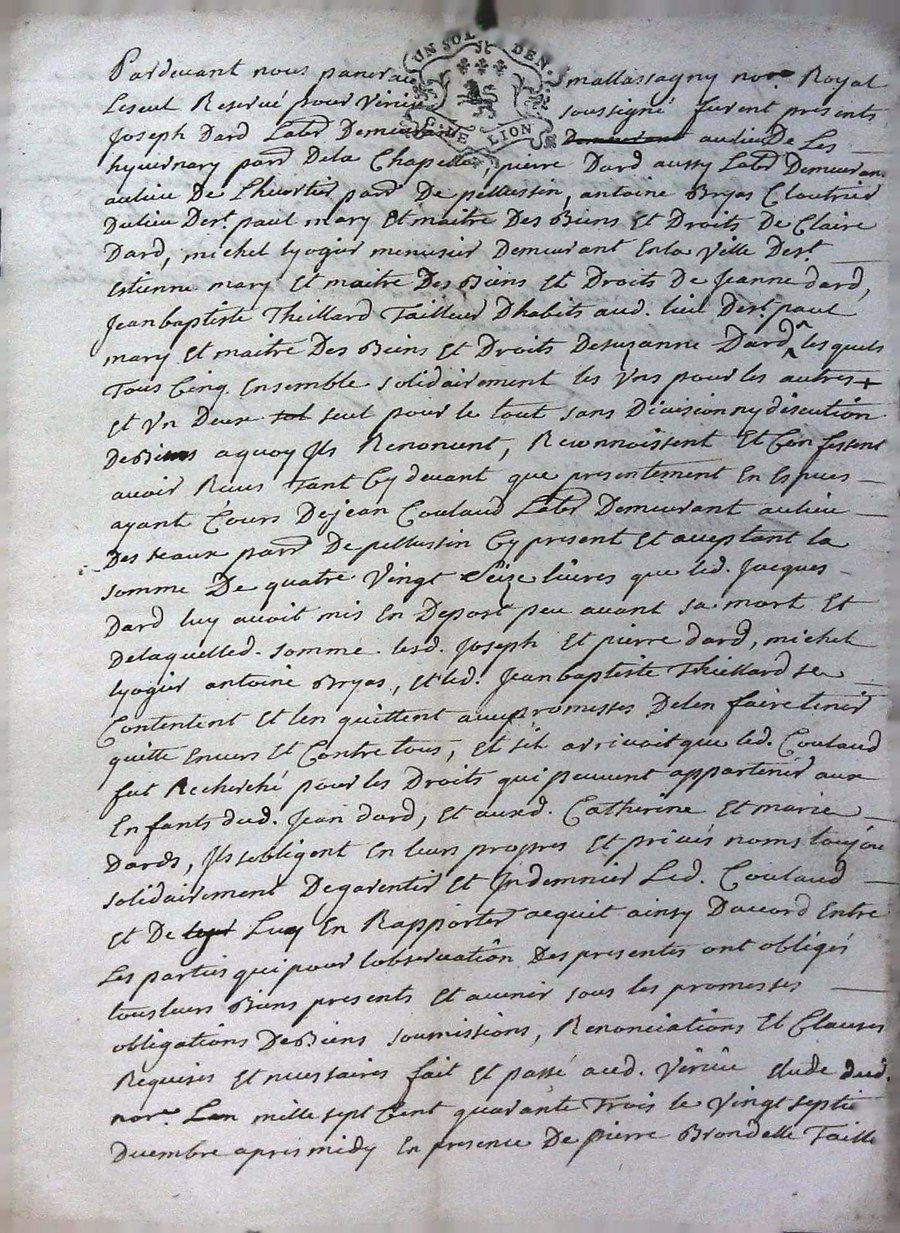 UN SOL DEN.
LION
Pardevant nous pancrace mallassagny nore. Royal
Le seul Reservé pour virieu soussigné furent presents
Joseph Dard Labr Demeurant Demeurant au lieu De Les
par De la Chapelle, pierre Dard aussy Labr Demeuran
au lieu De Lheortier par De pellussin, antoine Bryas Cloutrier
Du lieu De st. paul mary Et maitre Des Biens Et Droits De Claire
Dard, michel lyogier menusier Demeurant En la Ville De st.
Estienne mary Et maitre Des Biens Et Droits De Jeanne dard,
Jean baptiste Theillard Tailleur Dhabits aud. lieu De st. paul
mary Et maitre Des Biens Et Droits De suzanne Dard, lesquels
Tous Cinq Ensemble solidairement les Vns pour les autres +
Et Vn Deux sol seul pour le tout sans Division ny discution
De Biens a quoy Ils Renoncent, Reconnoissent Et Confessent
avoir Receus Tant Cy devant que presentement En Especes
ayant Cours De jean Coulaud Labr Demeurant au lieu
Des seaux par De pellussin Cy present Et aceptant la
somme De quatre Vingt Seize livres que led. Jacques
Dard luy avoit mis En Depost peu avant sa mort Et
De laquelled. somme lesd. Joseph Et pierre dard, michel
lyogier antoine Bryas, Et led. Jean baptiste Theillard se
Contentent Et len quittent avec promesses De len faire tenir
quitte Envers Et Contre tous, Et sil arrivoit que led. Coulaud
fut Recherché pour les Droits qui peuvent appartenir aux
Enfants dud. Jean dard, Et auxd. Catherine Et marie
Dards, Ils sobligent En leurs propres Et privés noms toujou
solidairement De garentir Et Indemnier Led. Coulaud
Et De Luy En Rapporter acquit ainsy Daccord Entre
Les parties qui pour lobservation Des presentes ont obligés
tous leurs Biens presents Et avenir sous les promesses
obligations De Biens soumissions, Renonciations Et Clauses
Requises Et necessaires fait Et passé aud. Virieu Etude dud.
nore. Lan mille sept Cent quarante Trois le vingt septie
Decembre apres midy En presence De pierre Brondelle Taille